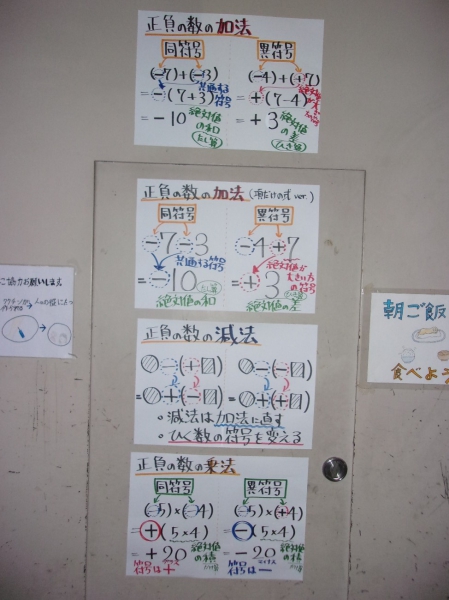 正負の数の加法
同符号
異符号
(-7)+(-3)
(-4)+(+7)
共通する符号
= -(7+3)
= +(7-4)
= -10
= +3
絶対値の和
たし算
絶対値の差
ひき算
正負の数の加法(項だけの式 ver.)
同符号
異符号
-7-3
-4+7
共通する符号
絶対値が大きい方の符号
= -10
= +3
たし算
絶対値の和
絶対値の差
正負の数の減法
-(+
-(-
= +(-
= +(+
・減法は加法に直す
・ひく数の符号を変える
正負の数の乗法
同符号
異符号
(-5)×(-4)
(-5)×(+4)
= +(5×4)
= -(5×4)
= +20
= -20
絶対値の積
絶対値の積
符号は+
プラス
符号は-
マイナス
ご協力お願いします
朝ご飯
食べよ